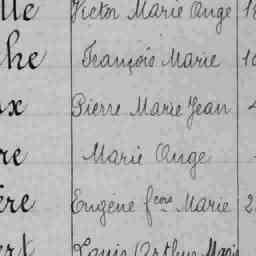 lle Victor Marie Ange 18
che François Marie 10
ux Pierre Marie Jean 4
re Marie Ange
ère Eugène fcois Marie 2
ert Louis Arthur Marie